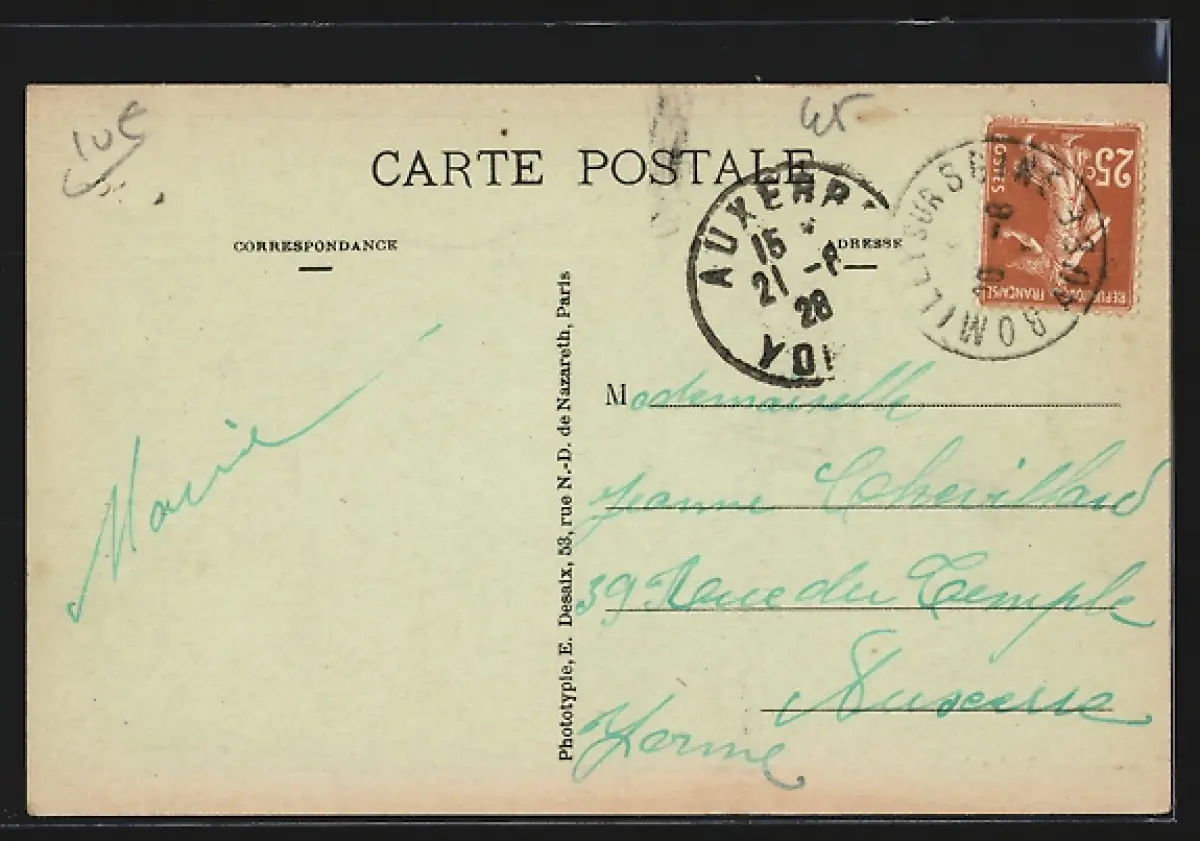 10€
45
CARTE POSTALE
CORRESPONDANCE
ADRESSE
AUXERR
15 *
21 -8
28
YON
ROMILLY SUR SEINE AUBE
20 -8
25c
POSTES
REPUBLIQUE
FRANÇAISE
Marie
Phototypie, E. Desaix, 53, rue N.-D. de Nazareth, Paris
Mademoiselle
Jeanne Chevillard
39 Rue du Temple
Auxerre
Yonne